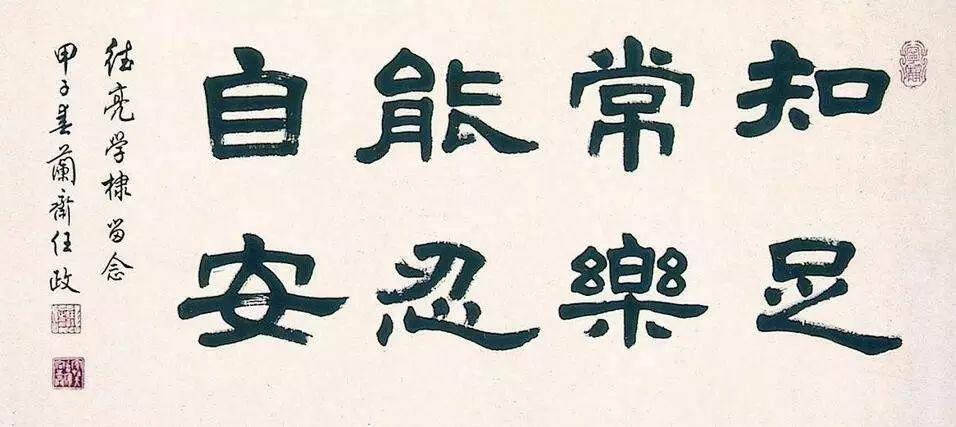 知足
常樂
能忍
自安
德亮学棣留念
甲子春蘭齋任政